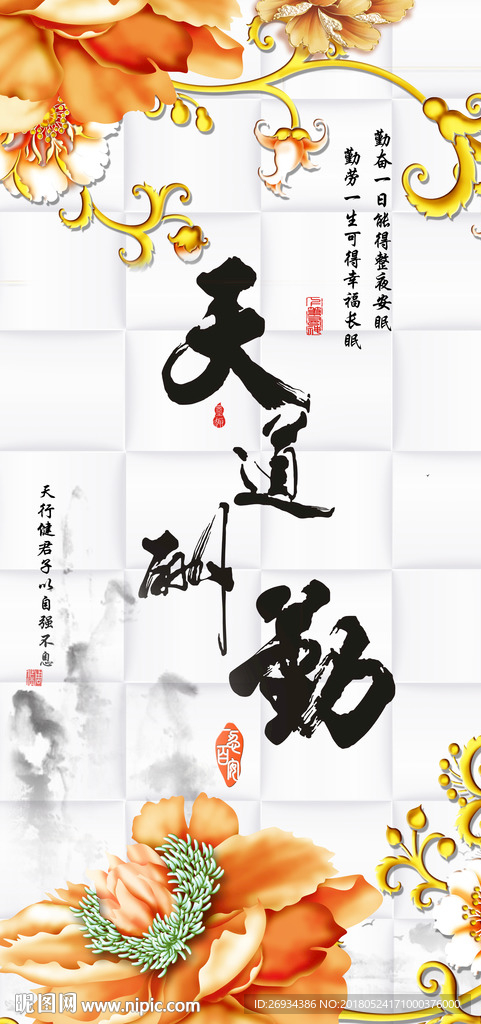 勤奋一日能得整夜安眠
勤劳一生可得幸福长眠
天道酬勤
天行健君子以自强不息
昵图网 www.nipic.com
ID:26934386 NO:20180524171000376000